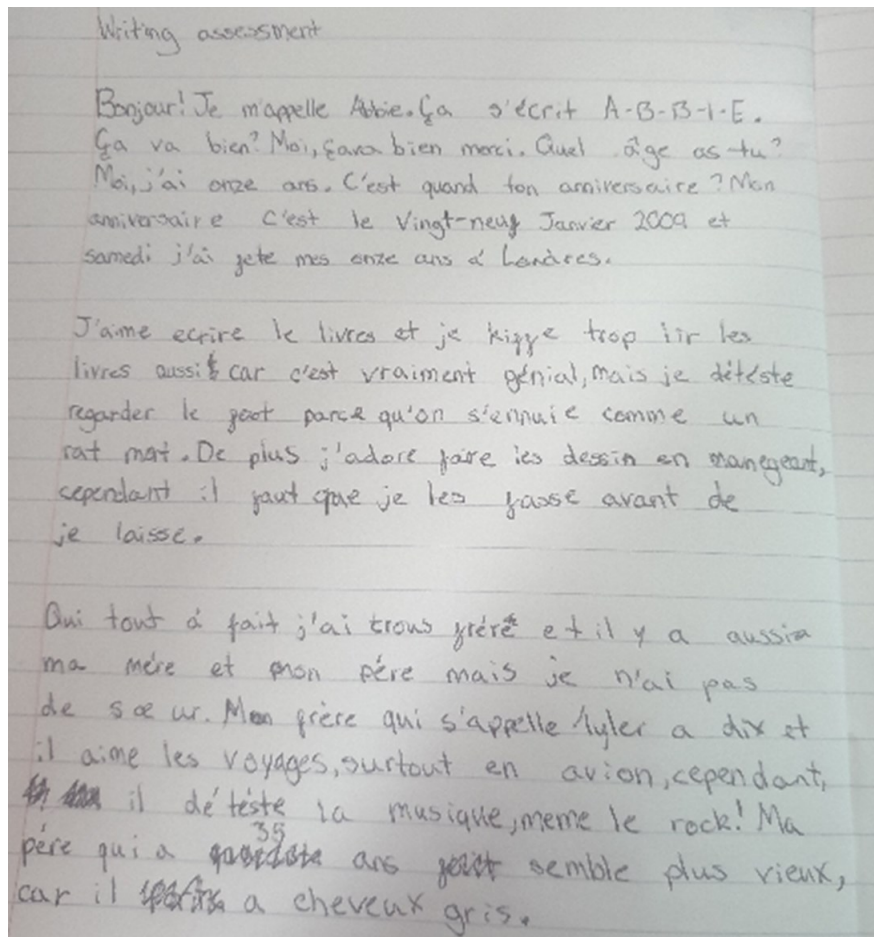 Writing assessment
Bonjour! Je m'appelle Abbie. Ça s'écrit A-B-B-I-E.
Ça va bien? Moi, çava bien merci. Quel âge as-tu?
Moi, j'ai onze ans. C'est quand ton anniversaire? Mon
anniversaire c'est le Vingt-neuf Janvier 2009 et
samedi j'ai fete mes onze ans á Londres.
J'aime ecrire le livres et je kiffe trop lir les
livres aussi car c'est vraiment génial, mais je détéste
regarder le foot parce qu'on s'ennuie comme un
rat mort. De plus j'adore faire les dessin en manegeant,
cependant il faut que je les fasse avant de
je laisse.
Oui tout á fait j'ai trous fréré et il y a aussi
ma mére et mon pére mais je n'ai pas
de sœur. Mon frère qui s'appelle Tyler a dix et
il aime les voyages, surtout en avion, cependant,
il détéste la musique, meme le rock! Ma
pére qui a 35 ans semble plus vieux,
car il a cheveux gris.